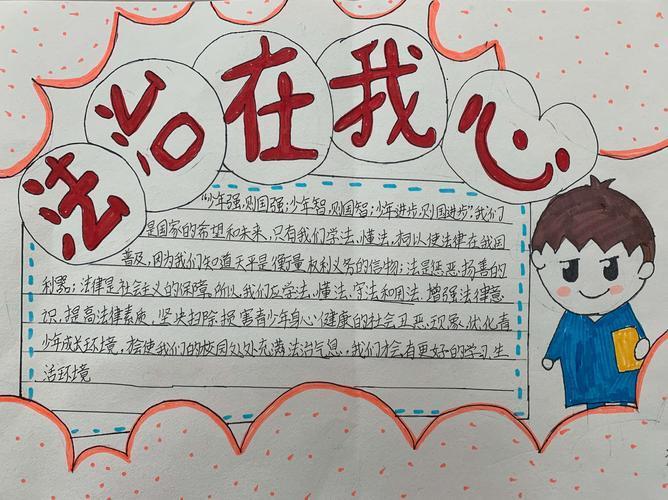 法治在我心
“少年强，则国强；少年智，则国智；少年进步，则国进步”，我们
是国家的希望和未来，只有我们学法、懂法，相以使法律在我国
普及，因为我们知道天平是衡量权利义务的信物；法是惩恶扬善的
利器；法律是社会主义的保障。所以我们应学法、懂法、守法和用法，增强法律意
识，提高法律素质，坚决扫除损害青少年身心健康的社会丑恶现象，优化青
少年成长环境，才会使我们的校园处处充满法治气息，我们才会有更好的学习生
活环境